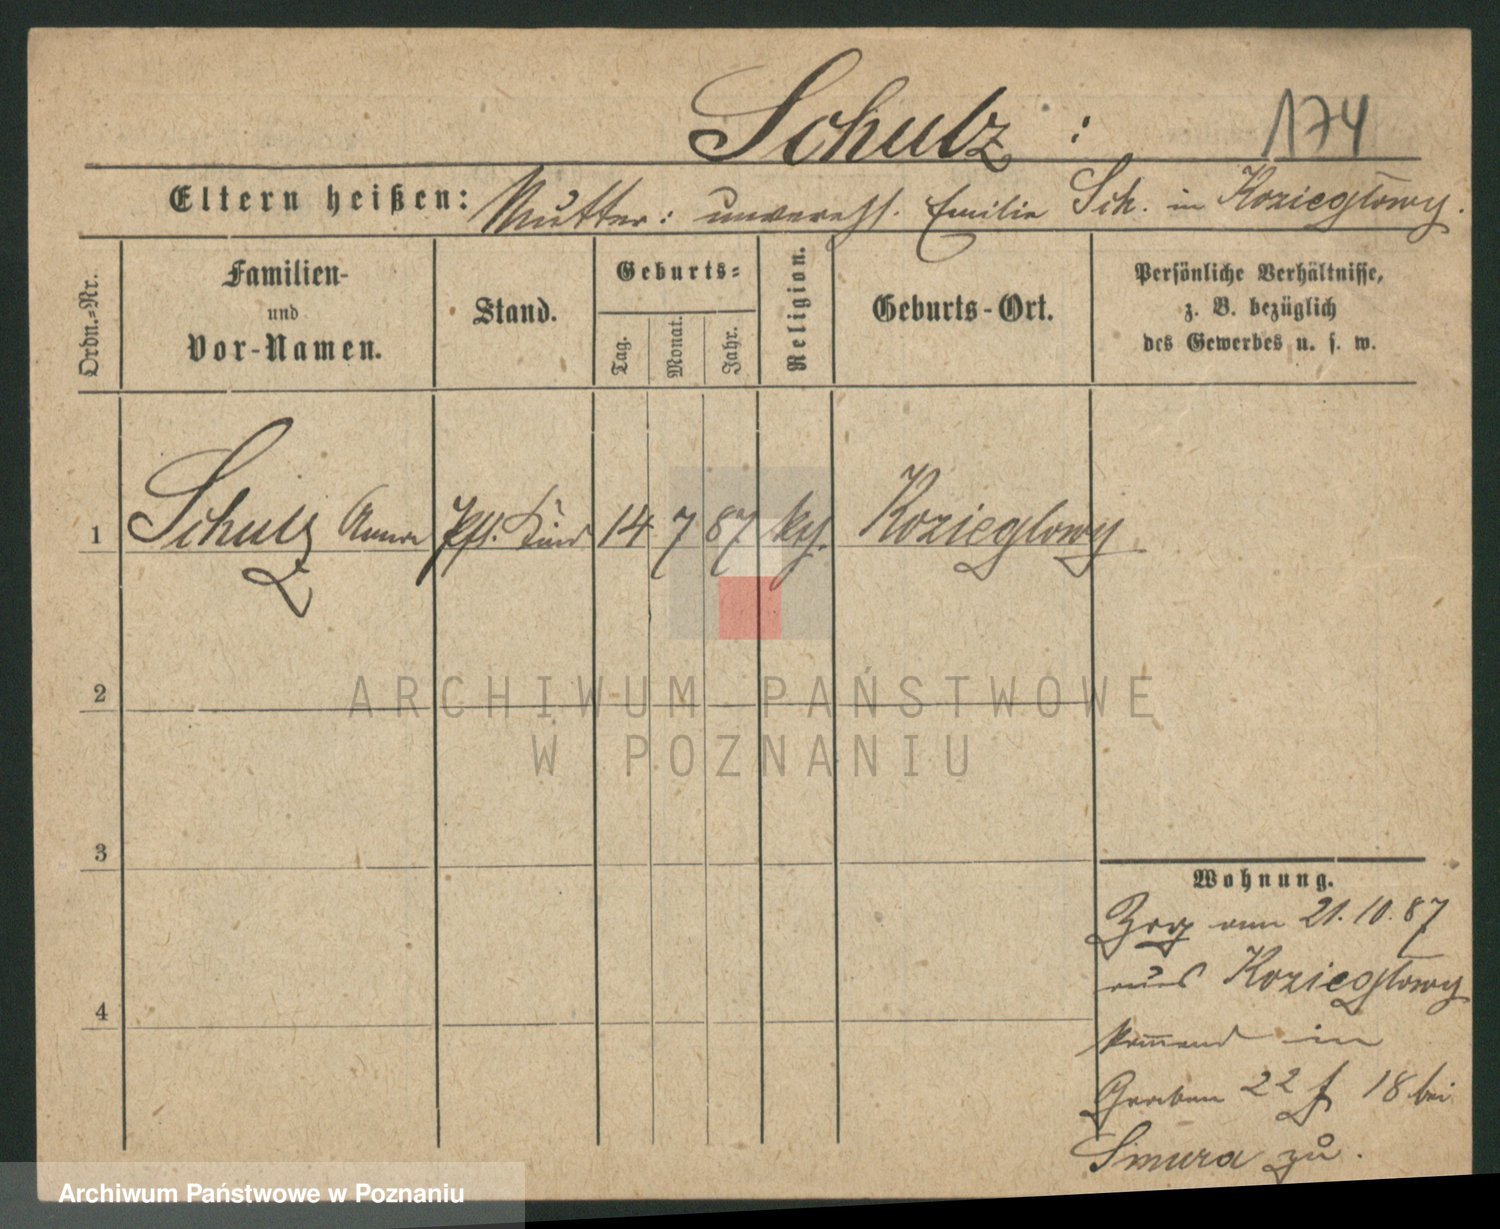 Schulz :
174
Eltern heißen: Mutter: unverehl. Emilie Sch. in Koziegłowy.
Ordn.-Nr.
Familien-
und
Vor-Namen.
Stand.
Geburts-
Tag.
Monat.
Jahr.
Religion.
Geburts-Ort.
Persönliche Verhältnisse,
z. B. bezüglich
des Gewerbes u. s. w.
1 Schulz Anna Pfl. Kind 14 7 87 Koziegłowy
2
3
4
Wohnung.
Zog am 21.10.87
aus Koziegłowy
kom̅end in
Graben 22 18 bei
Smura zu.
ARCHIWUM PAŃSTWOWE
W POZNANIU
Archiwum Państwowe w Poznaniu